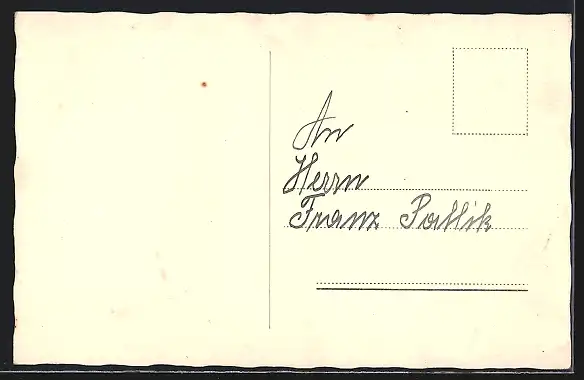 An
Herrn
Franz Pallik